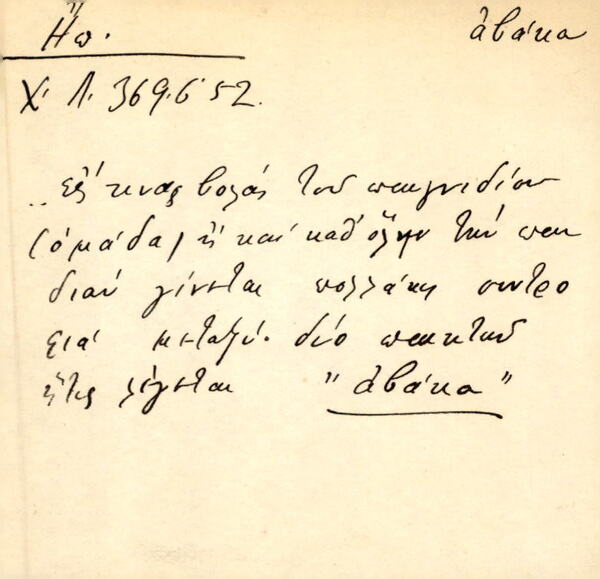 Ἤπ. ἀβάκα
Χ. Λ. 369.6 52.
.. εἰς τινας βολάς τοῦ παιγνιδίου
(ὁμάδα) ἢ καὶ καθ' ὅλην τὴν παι
διάν γίνεται πολλάκις συντρο
φιά μεταξύ δύο παικτῶν
ἥτις λέγεται "ἀβάκα"